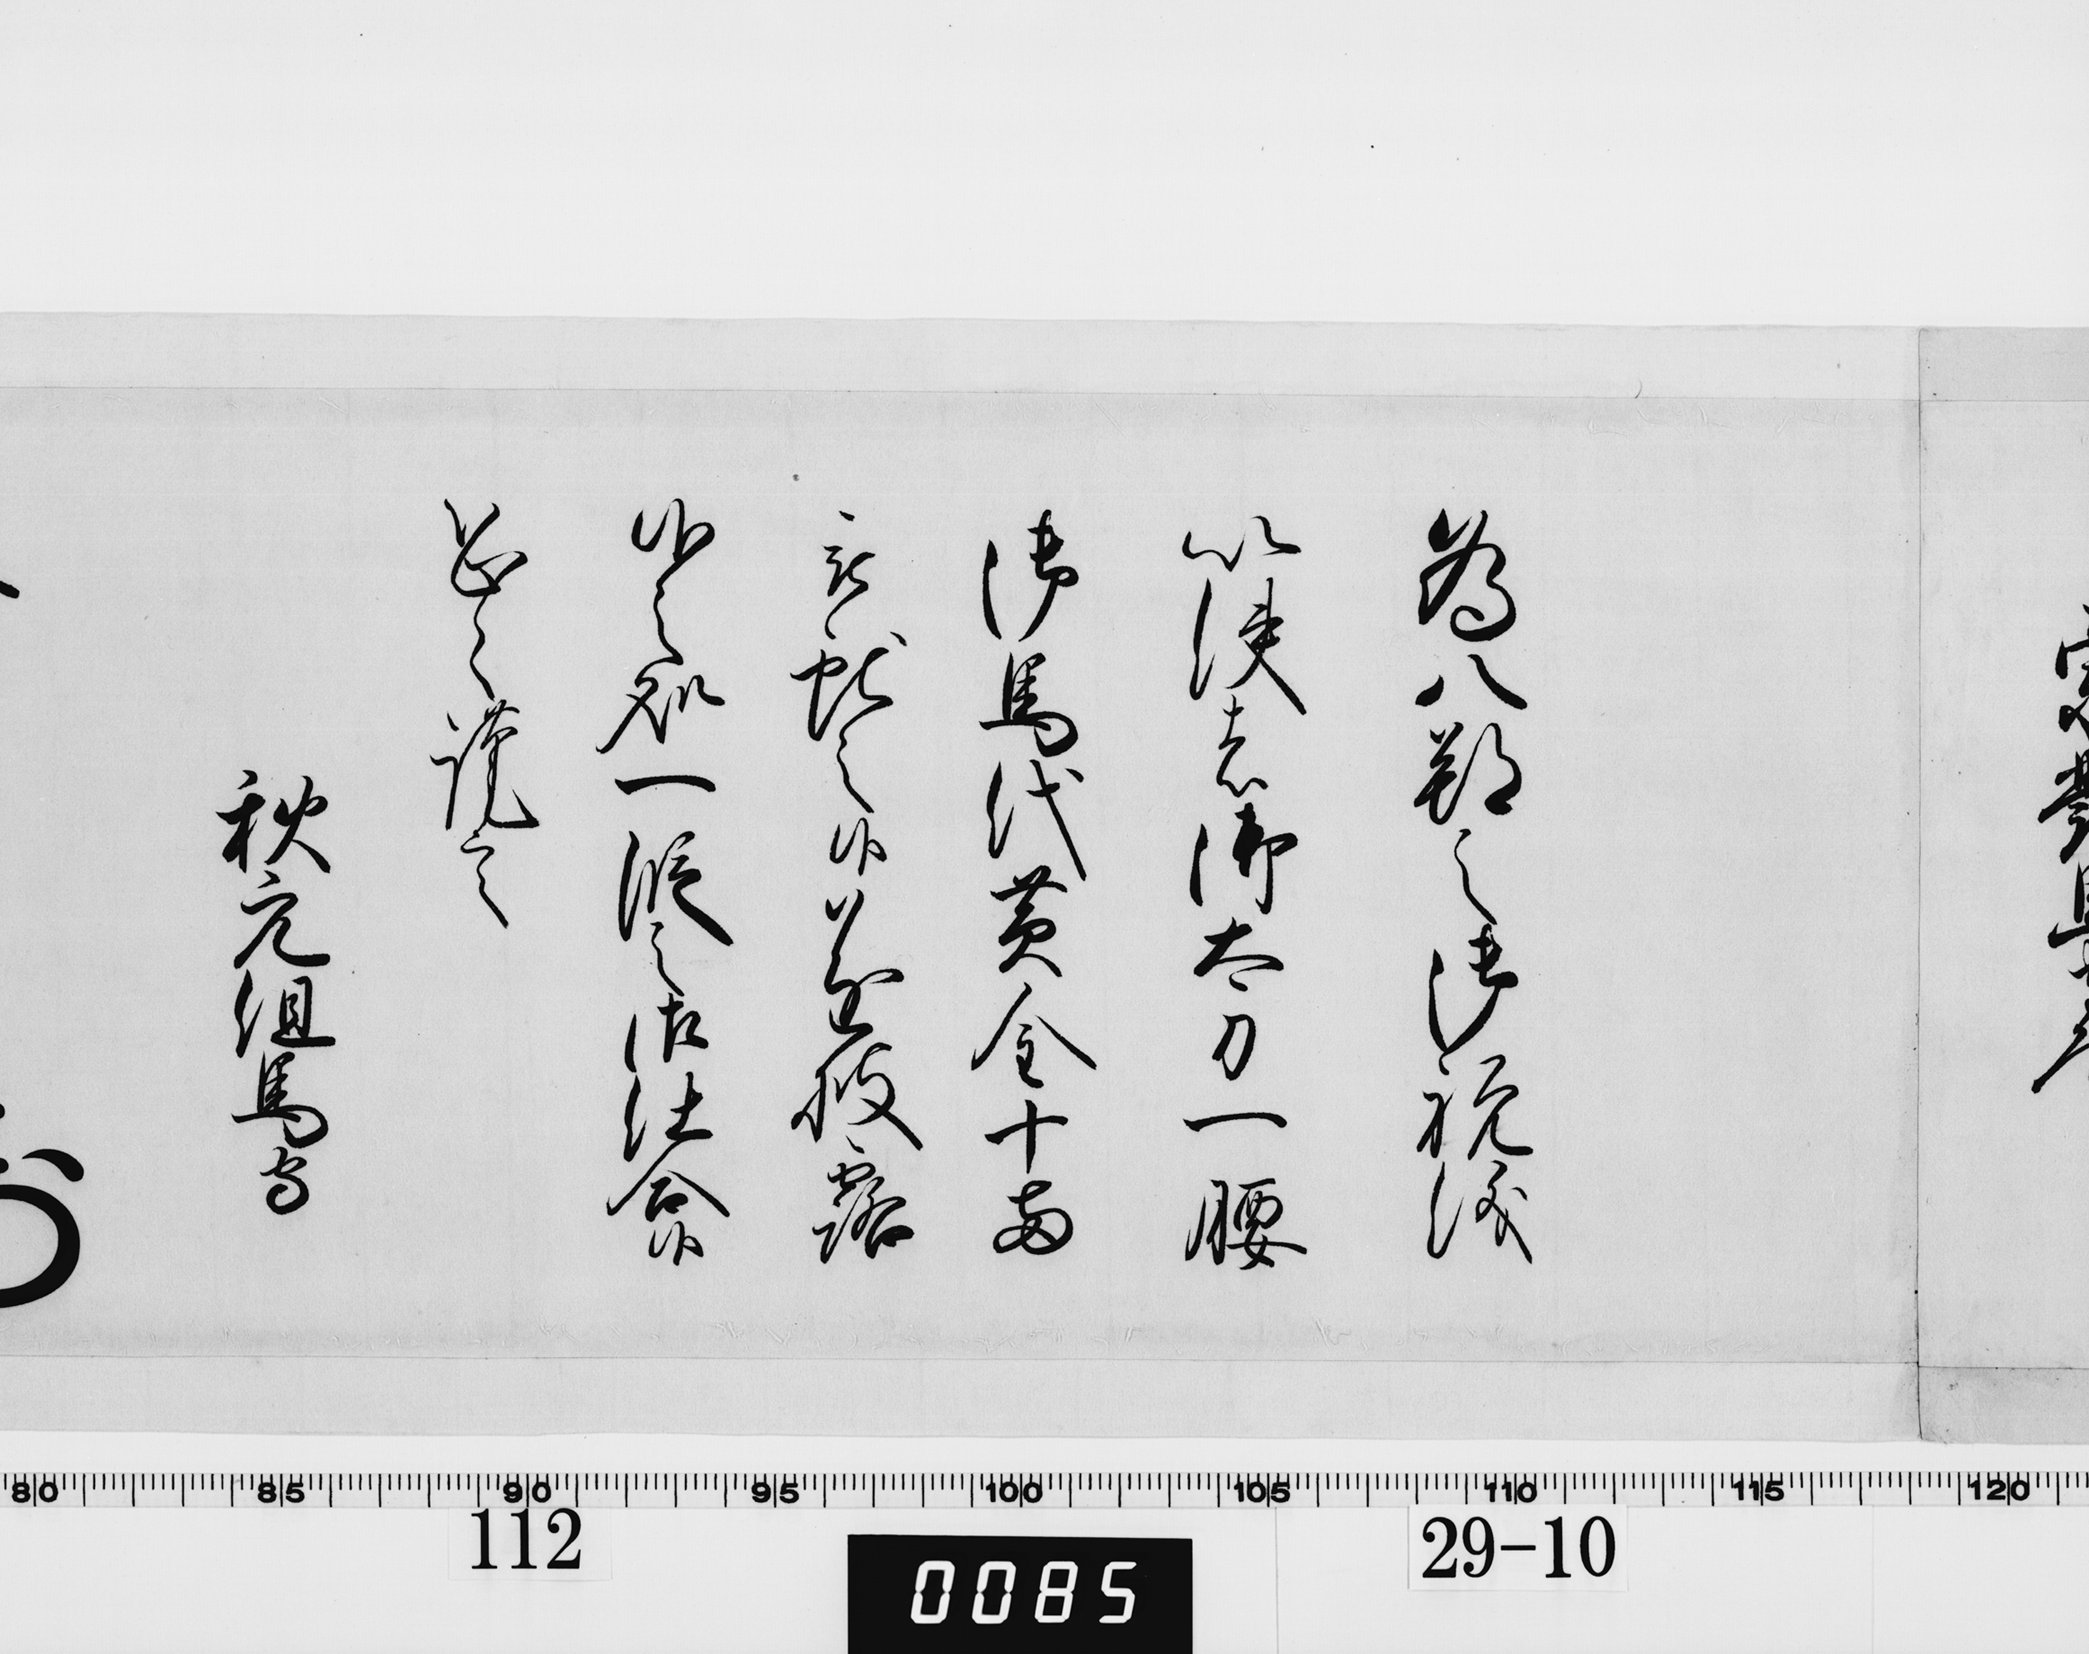 為八朔之御祝儀
以使者御太刀一腰
御馬代黄金十両
被献之候遂披露
候之処一段之御仕合候
恐々謹言
秋元但馬守
80 85 90 95 100 105 110 115 120
112
0085
29-10